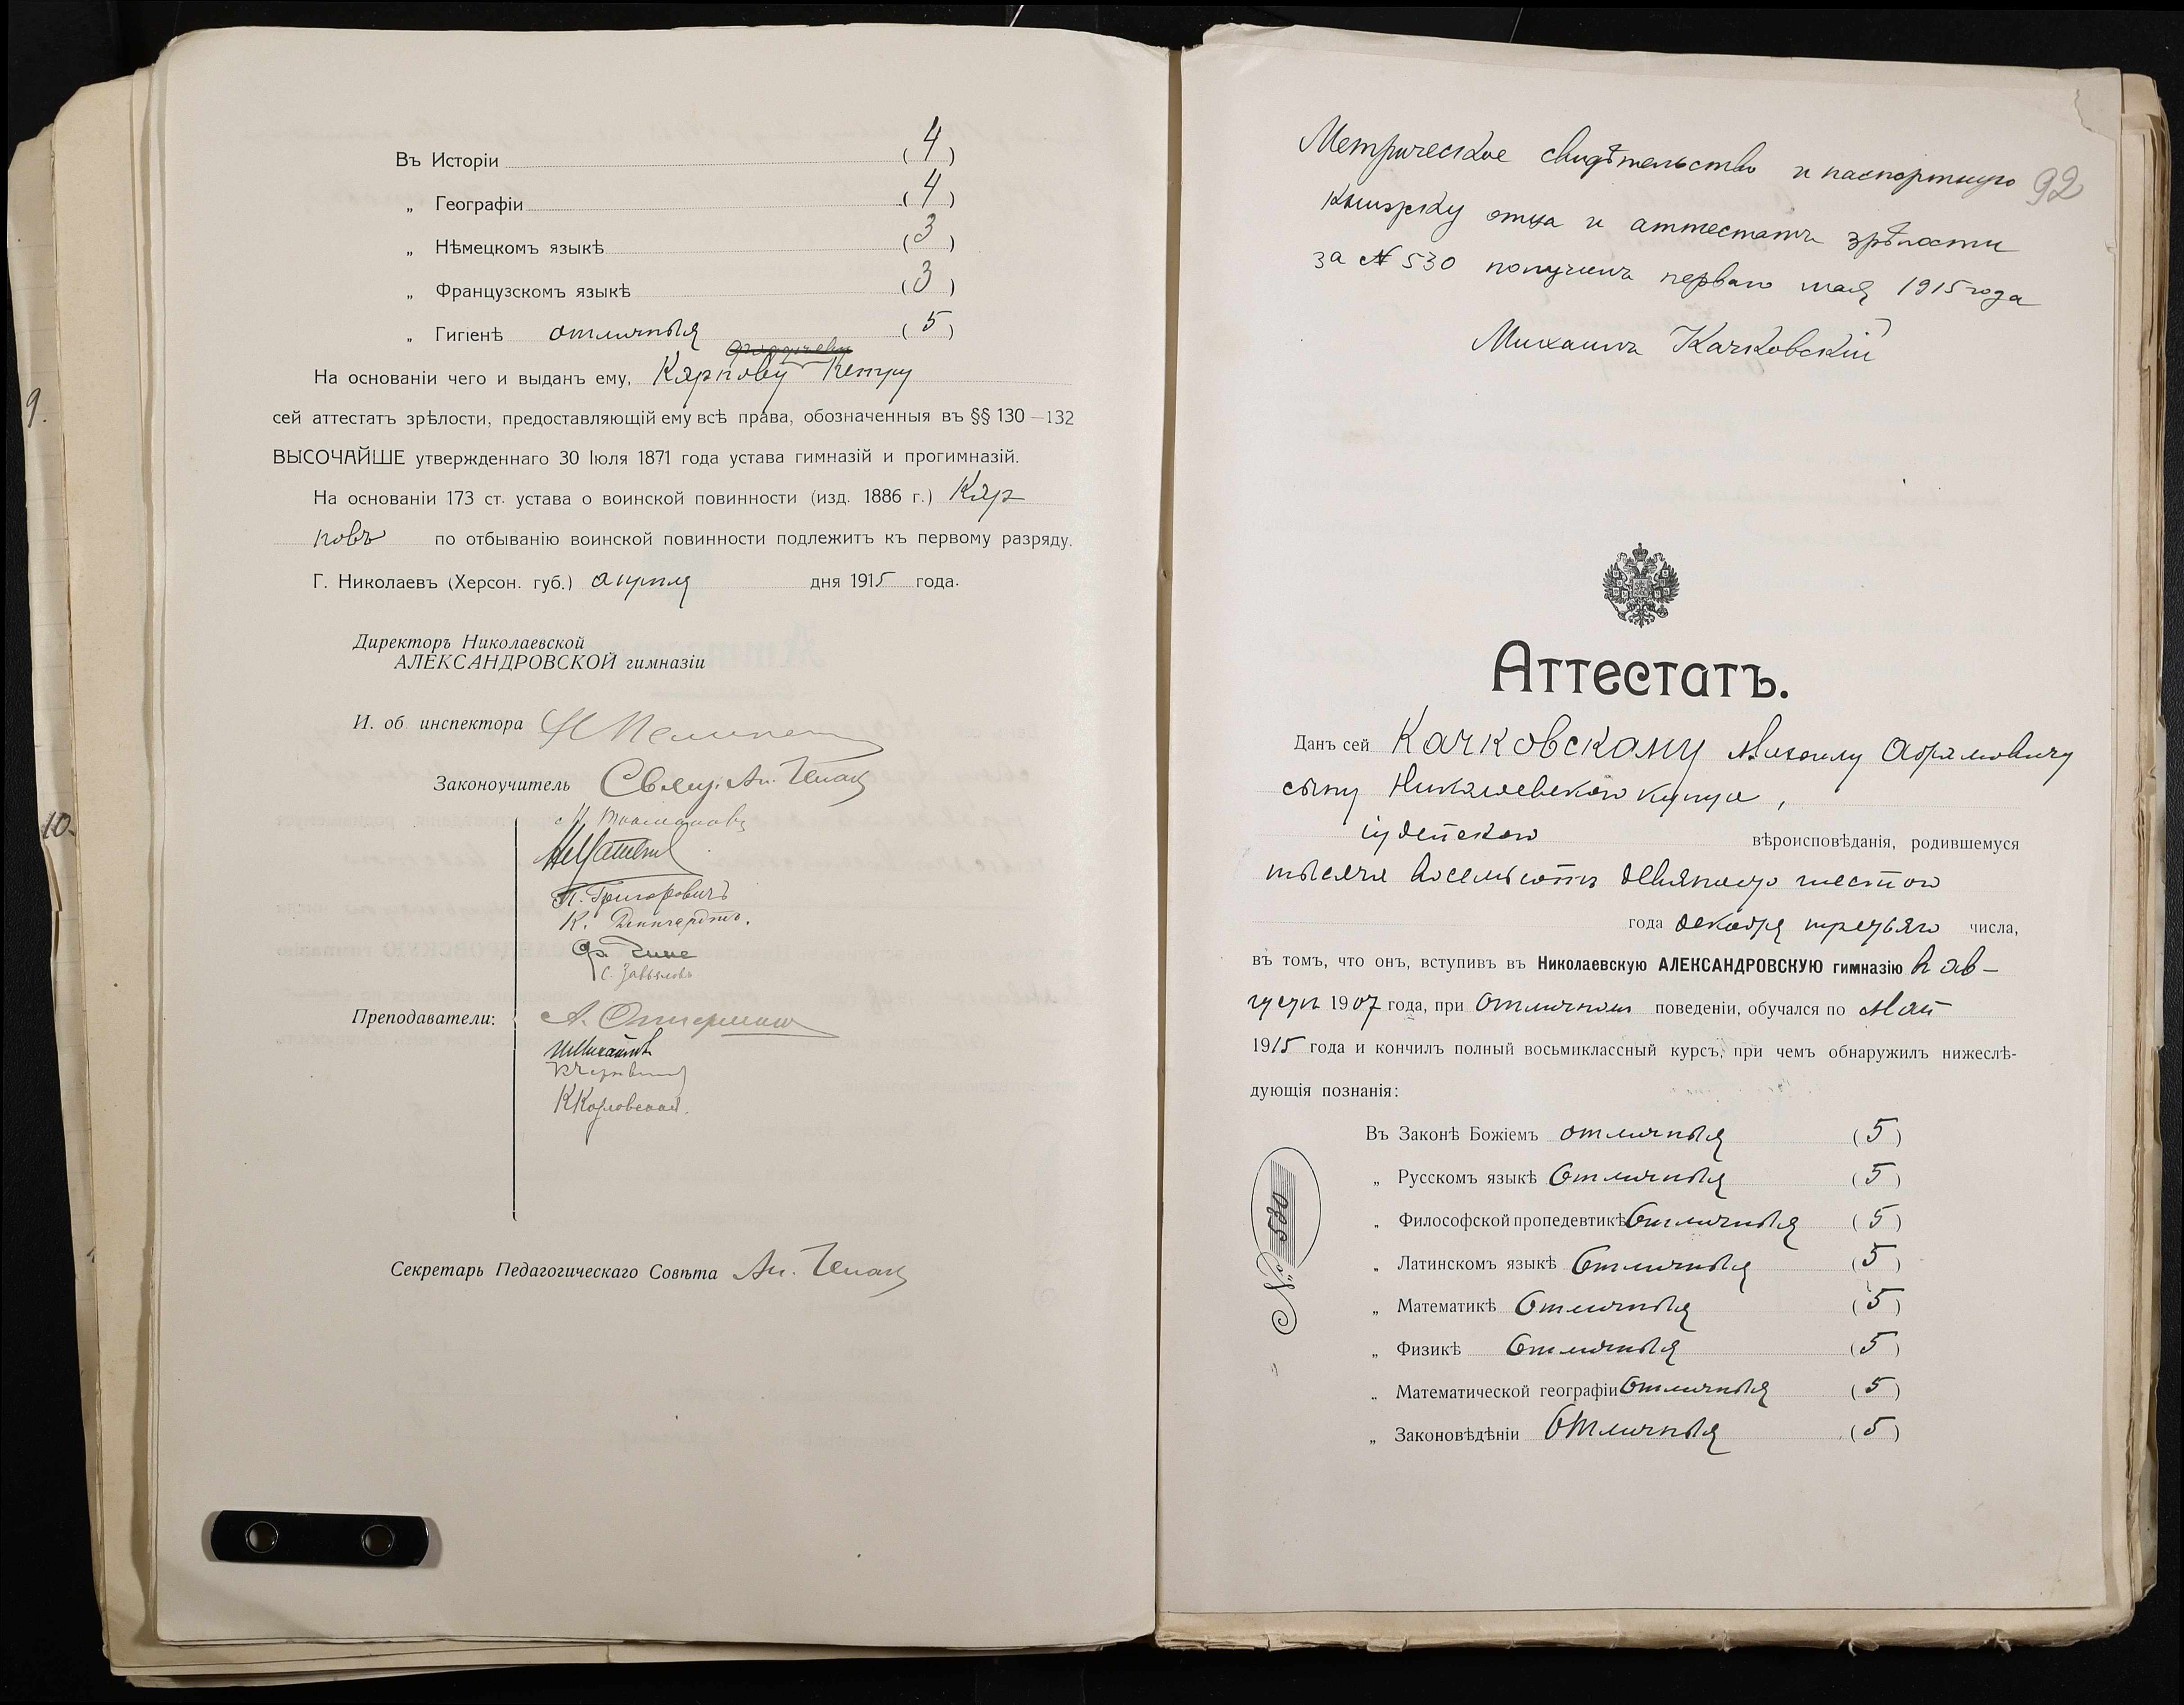 9.
10.
Въ Исторіи (4)
„ Географіи (4)
„ Нѣмецкомъ языкѣ (3)
„ Французскомъ языкѣ (3)
„ Гигіенѣ отличныя (5)
На основаніи чего и выданъ ему, Карпову Петру
сей аттестатъ зрѣлости, предоставляющій ему всѣ права, обозначенныя въ §§ 130—132
ВЫСОЧАЙШЕ утвержденнаго 30 Іюля 1871 года устава гимназій и прогимназій.
На основаніи 173 ст. устава о воинской повинности (изд. 1886 г.) Кар
повъ по отбыванію воинской повинности подлежитъ къ первому разряду.
Г. Николаевъ (Херсон. губ.) апрѣля дня 1915 года.
Директоръ Николаевской
АЛЕКСАНДРОВСКОЙ гимназіи
И. об инспектора
Законоучитель Свящ. Ан.
П. Григоровичъ
С. Завьяловъ
Преподаватели:
К Козловская.
Секретарь Педагогическаго Совѣта Ан.
92
Метрическое свидѣтельство и паспортную
книжку отца и аттестатъ зрѣлости
за № 530 получилъ перваго мая 1915 года
Михаилъ Качковскій
Аттестатъ.
Данъ сей Качковскому Михаилу Абрамовичу
сыну Николаевскаго купца,
іудейскаго вѣроисповѣданія, родившемуся
тысяча восемьсотъ девяносто шестого
года декабря третьяго числа,
въ томъ, что онъ, вступивъ въ Николаевскую АЛЕКСАНДРОВСКУЮ гимназію въ ав-
густѣ 1907 года, при отличномъ поведеніи, обучался по май
1915 года и кончилъ полный восьмиклассный курсъ, при чемъ обнаружилъ нижеслѣ-
дующія познанія:
Въ Законѣ Божіемъ отличныя (5)
„ Русскомъ языкѣ отличныя (5)
„ Философской пропедевтикѣ отличныя (5)
„ Латинскомъ языкѣ отличныя (5)
„ Математикѣ отличныя (5)
„ Физикѣ отличныя (5)
„ Математической географіи отличныя (5)
„ Законовѣдѣніи отличныя (5)
№ 530